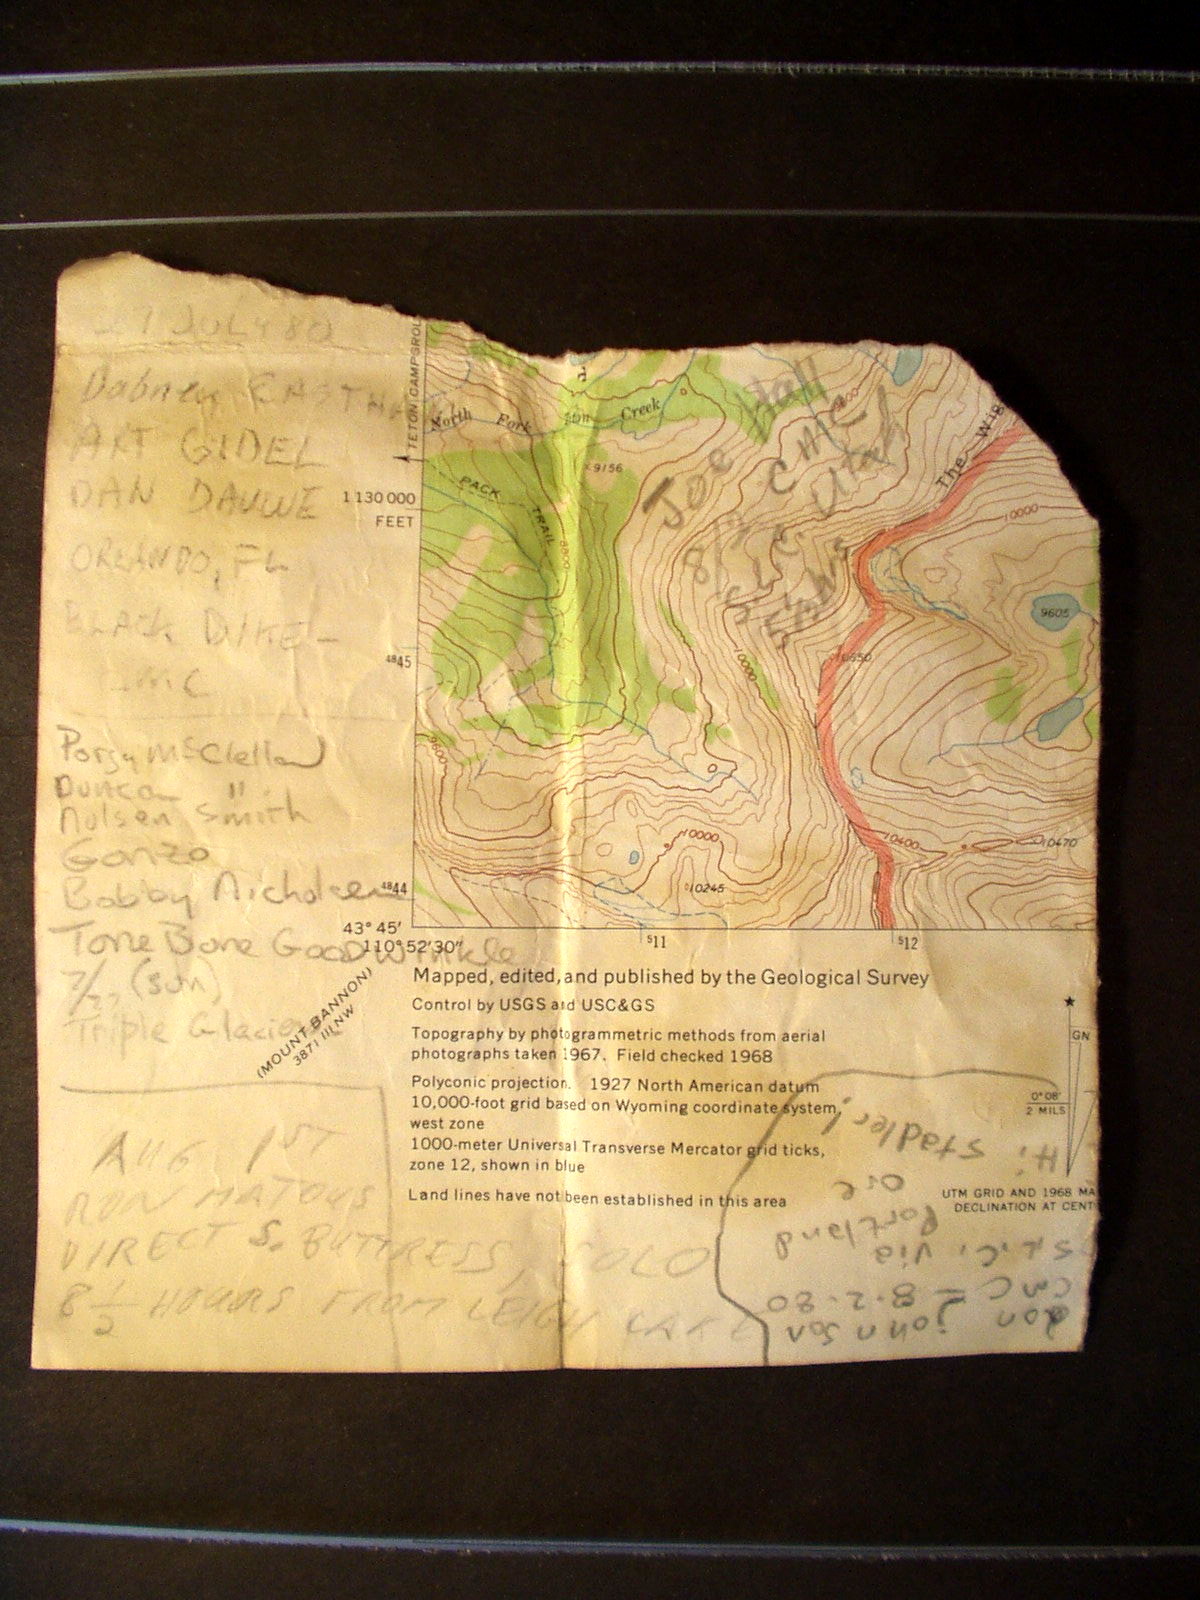 JULY 80
Dabney EASTHAM
ART GIDEL
DAN DAUWE
ORLANDO, FL
BLACK DIKE -
CMC
Porgy McClellan
Duncan "
Smith
Gonzo
Bobby
Tone Bone GOODwinkle
(sun)
Triple Glaciers
AUG 1ST
RON MATOUS
DIRECT S. BUTTRESS, SOLO
8 1/2 HOURS FROM LEIGH LAKE
TETON CAMPGROU
North Fork Creek
9156
PACK TRAIL
8800
1 130 000
FEET
Joe Hall
CMC
SLC. Utah
The Wig
10000
9605
10650
10000
4845
9600
10000
10400
10470
10245
4844
43° 45'
110° 52' 30"
511
512
(MOUNT BANNON)
3871 III NW
Mapped, edited, and published by the Geological Survey
Control by USGS and USC&GS
Topography by photogrammetric methods from aerial
photographs taken 1967. Field checked 1968
Polyconic projection. 1927 North American datum
10,000-foot grid based on Wyoming coordinate system,
west zone
1000-meter Universal Transverse Mercator grid ticks,
zone 12, shown in blue
Land lines have not been established in this area
★
GN
0° 08'
2 MILS
UTM GRID AND 1968 MA
DECLINATION AT CENT
don johnson
CMC - 8-2-80
S.L.C. via
Portland
Ore
Hi Stadler!